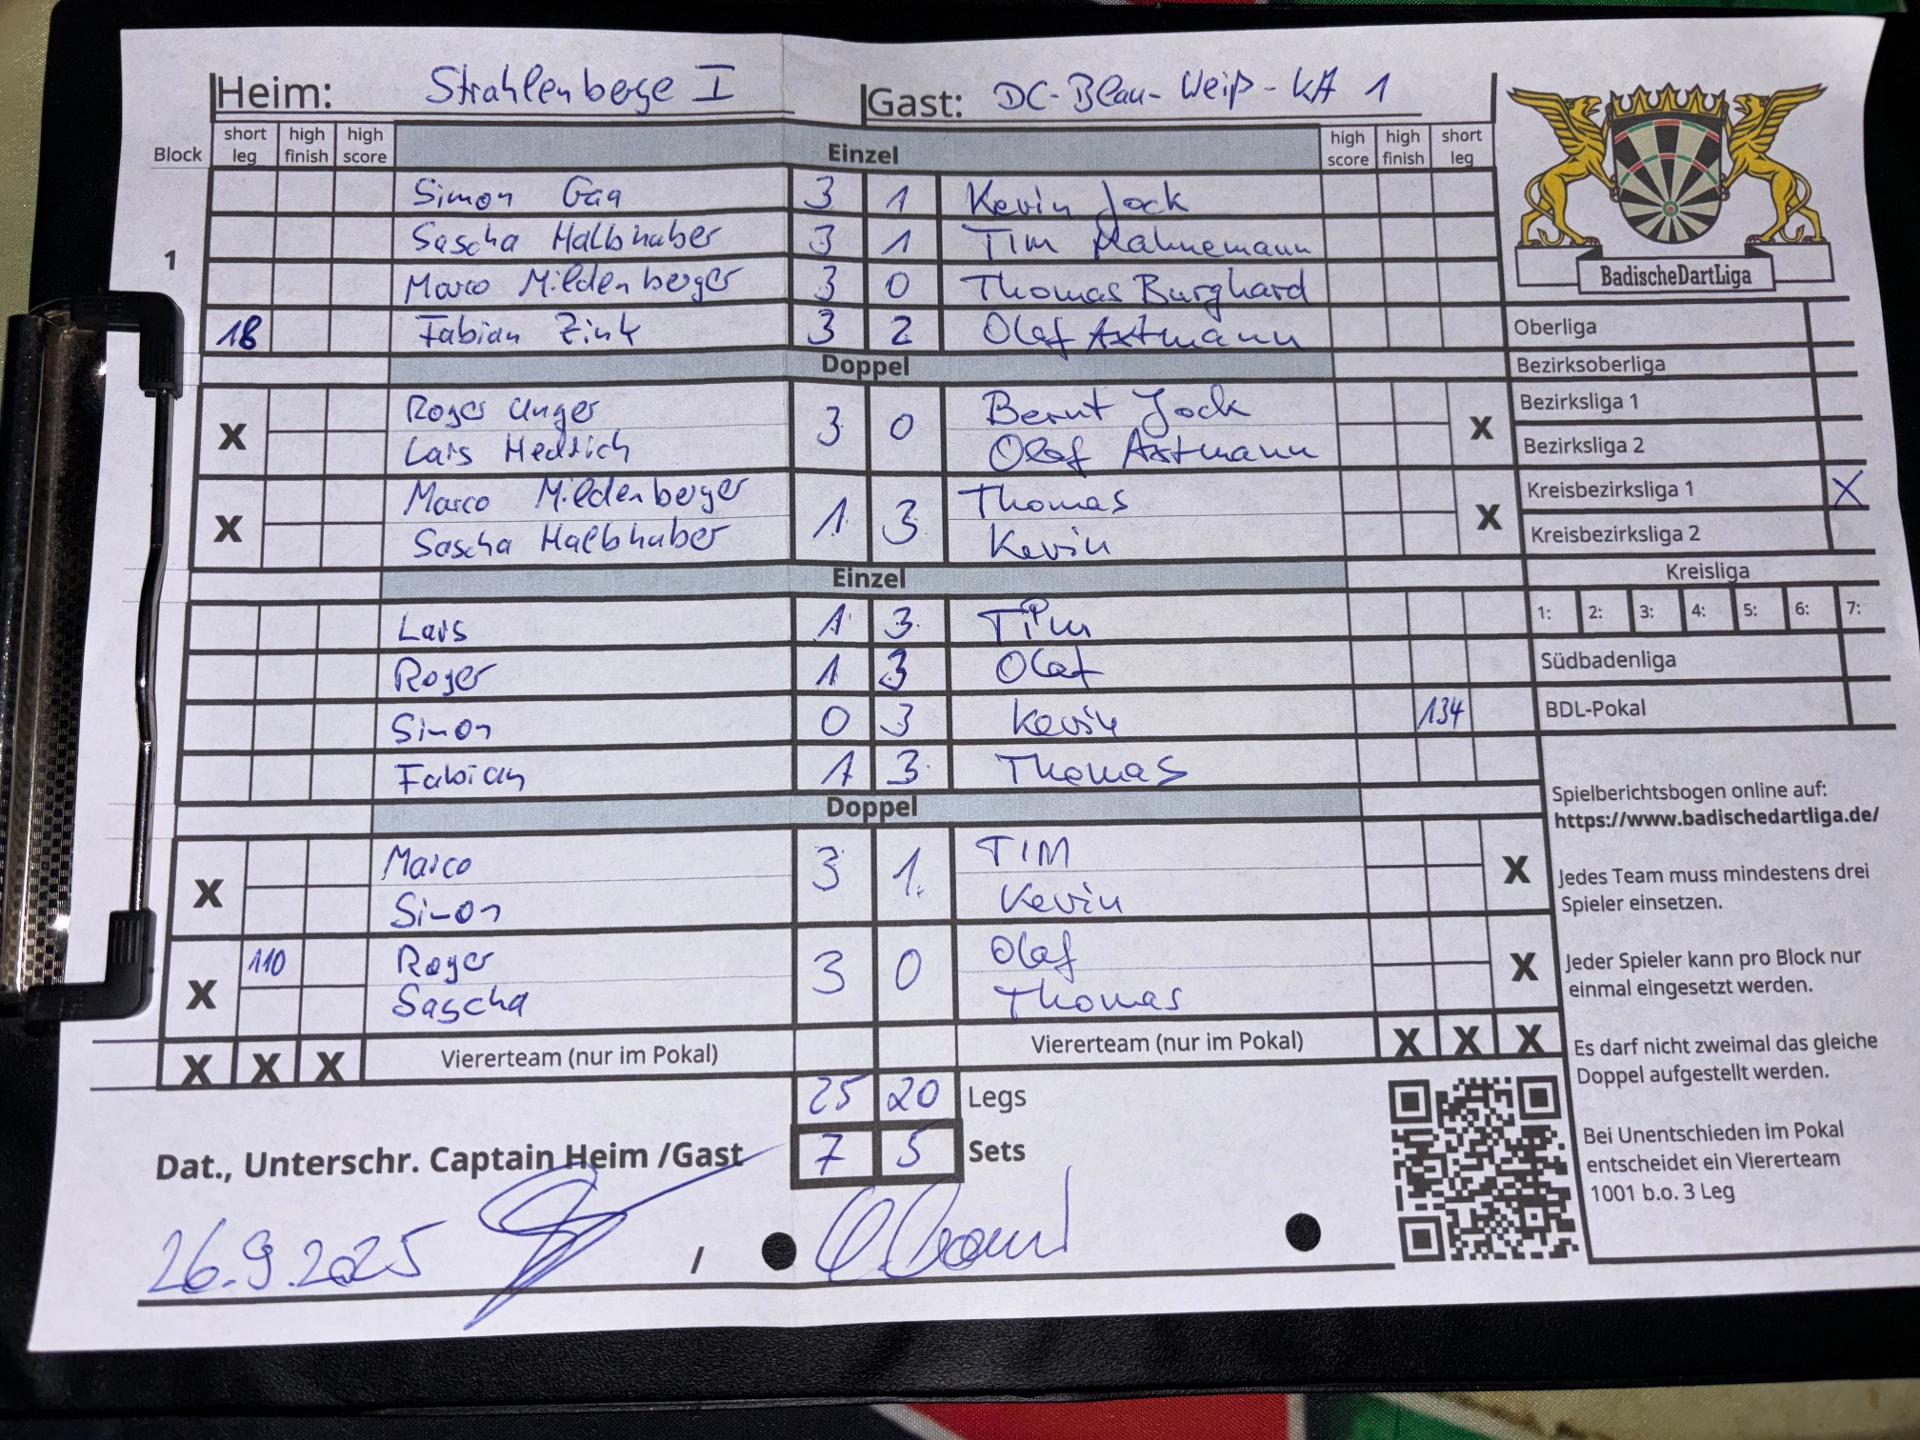 Heim: Strahlenberge I Gast: DC-Blau-Weiß-KA 1
Block short leg high finish high score Einzel high score high finish short leg
Simon Gaa 3 1 Kevin Jock
Sascha Halbhuber 3 1 Tim Hahnemann
1
Marco Mildenberger 3 0 Thomas Burghard
18 Fabian Zink 3 2 Olaf Axtmann
Doppel
Roger Unger Bernt Jock
X 3 0 X
Lars Hedrich Olaf Axtmann
Marco Mildenberger Thomas
X 1 3 X
Sascha Halbhuber Kevin
Einzel
Lars 1 3 Tim
Roger 1 3 Olaf
Simon 0 3 Kevin 134
Fabian 1 3 Thomas
Doppel
Marco TIM
X 3 1 X
Simon Kevin
110 Roger Olaf
X 3 0 X
Sascha Thomas
X X X Viererteam (nur im Pokal) Viererteam (nur im Pokal) X X X
25 20 Legs
Dat., Unterschr. Captain Heim /Gast 7 5 Sets
26.9.2025 /
BadischeDartLiga
Oberliga
Bezirksoberliga
Bezirksliga 1
Bezirksliga 2
Kreisbezirksliga 1 X
Kreisbezirksliga 2
Kreisliga
1: 2: 3: 4: 5: 6: 7:
Südbadenliga
BDL-Pokal
Spielberichtsbogen online auf:
https://www.badischedartliga.de/
Jedes Team muss mindestens drei
Spieler einsetzen.
Jeder Spieler kann pro Block nur
einmal eingesetzt werden.
Es darf nicht zweimal das gleiche
Doppel aufgestellt werden.
Bei Unentschieden im Pokal
entscheidet ein Viererteam
1001 b.o. 3 Leg